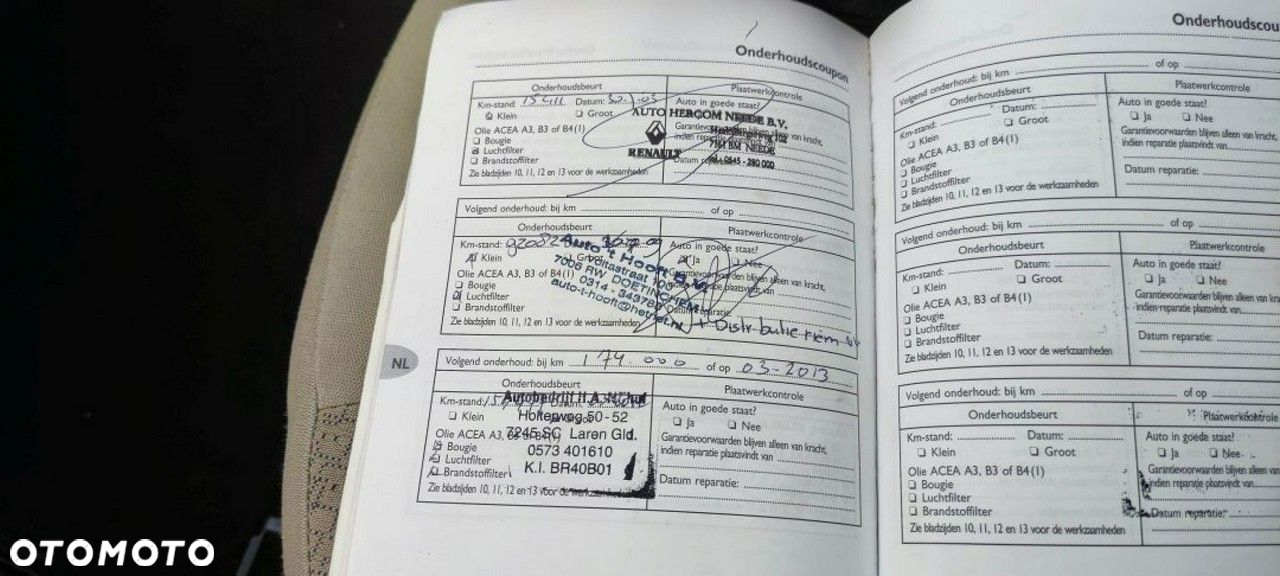 Onderhoudscoupon
Onderhoudsbeurt
Plaatwerkcontrole
Km-stand: 15411 Datum:
Auto in goede staat?
Klein
Groot
AUTO HERCOM NEEDE B.V.
Olie ACEA A3, B3 of B4(1)
Bougie
Luchtfilter
Brandstoffilter
RENAULT
7161 BM NEEDE
Tel. 0545 - 280 000
Zie bladzijden 10, 11, 12 en 13 voor de werkzaamheden
Volgend onderhoud: bij km
of op
Onderhoudsbeurt
Plaatwerkcontrole
Km-stand:
Auto in goede staat?
Klein
Ja
Nee
Auto 't Hooft
7006 RW DOETINCHEM
auto-t-hooft@hetnet.nl
Olie ACEA A3, B3 of B4(1)
Bougie
Luchtfilter
Brandstoffilter
+ Distributie riem
Zie bladzijden 10, 11, 12 en 13 voor de werkzaamheden
NL
Volgend onderhoud: bij km 174.000 of op 03-2013
Onderhoudsbeurt
Plaatwerkcontrole
Km-stand:
Auto in goede staat?
Klein
Ja
Nee
Holteweg 50-52
7245 SC Laren Gld.
0573 401610
K.I. BR40B01
Olie ACEA A3,
Bougie
Luchtfilter
Brandstoffilter
Garantievoorwaarden blijven alleen van kracht,
indien reparatie plaatsvindt van
Datum reparatie:
Zie bladzijden 10, 11, 12 en 13 voor de werkzaamheden
Onderhoudscou
Volgend onderhoud: bij km
of op
Onderhoudsbeurt
Plaatwerkcontrole
Km-stand:
Datum:
Auto in goede staat?
Klein
Groot
Ja
Nee
Olie ACEA A3, B3 of B4(1)
Bougie
Luchtfilter
Brandstoffilter
Garantievoorwaarden blijven alleen van k
indien reparatie plaatsvindt van
Datum reparatie:
Zie bladzijden 10, 11, 12 en 13 voor de werkzaamheden
Volgend onderhoud: bij km
of op
Onderhoudsbeurt
Plaatwerkcontrole
Km-stand:
Datum:
Auto in goede staat?
Klein
Groot
Ja
Nee
Olie ACEA A3, B3 of B4(1)
Bougie
Luchtfilter
Brandstoffilter
Garantievoorwaarden blijven alleen van
indien reparatie plaatsvindt van
Datum reparatie:
Zie bladzijden 10, 11, 12 en 13 voor de werkzaamheden
Volgend onderhoud: bij km
of op
Onderhoudsbeurt
Plaatwerkcontrole
Km-stand:
Datum:
Auto in goede staat?
Klein
Groot
Ja
Nee
Olie ACEA A3, B3 of B4(1)
Bougie
Luchtfilter
Brandstoffilter
Garantievoorwaarden blijven alleen van
indien reparatie plaatsvindt van
Datum reparatie:
Zie bladzijden 10, 11, 12 en 13 voor de werkzaamheden
OTOMOTO